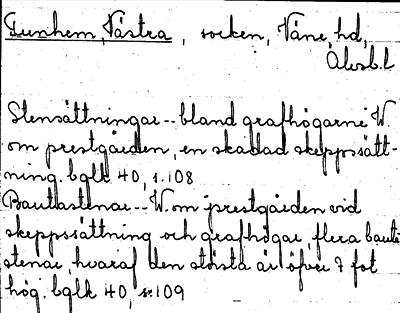 Tunhem, Västra, socken, Väne, hd,
Älvsb.l
Stensättningar -- bland grafhögarne W
om prestgården, en skadad skeppssätt-
ning. bglk 40, s.108
Bautastenar -- W. om prestgården vid
skeppssättning och grafhögar, flera bauta
stenar, hvaraf den största är öfver 7 fot
hög. bglk 40, s.109